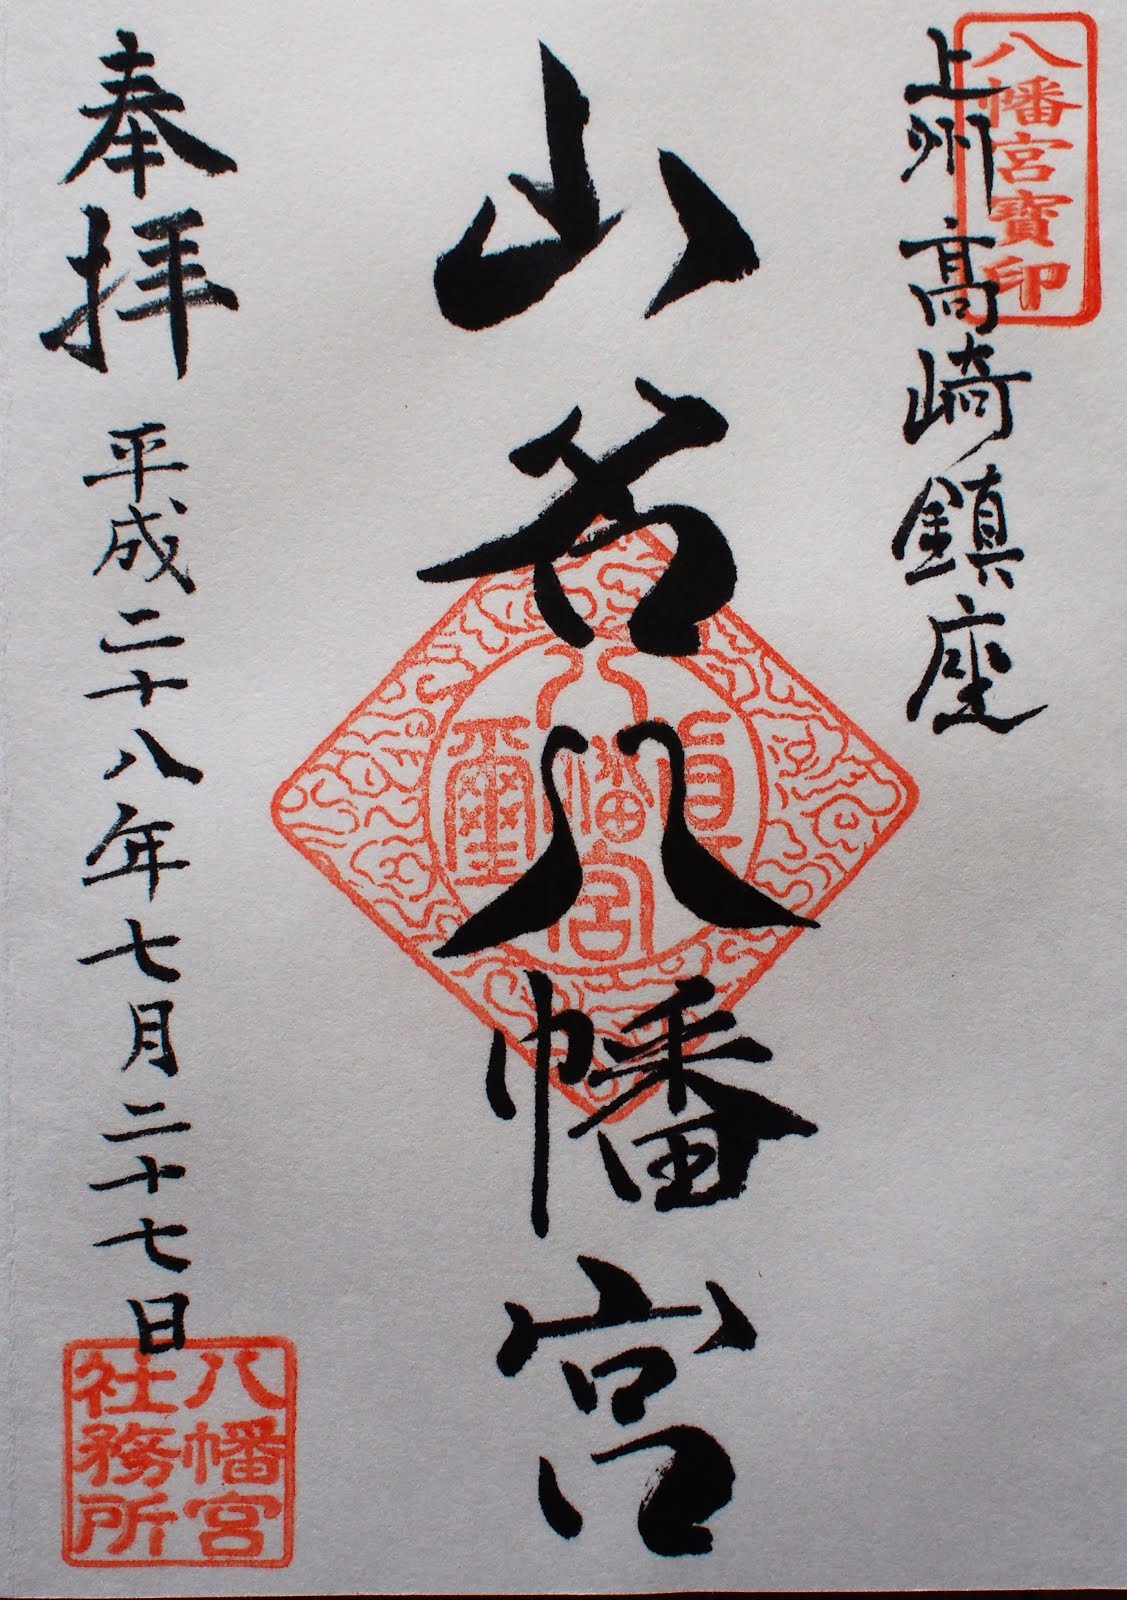 八幡宮寶印
上州高崎鎮座
山名八幡宮
八幡宮
璽
奉拝
平成二十八年七月二十七日
八幡宮
社務所